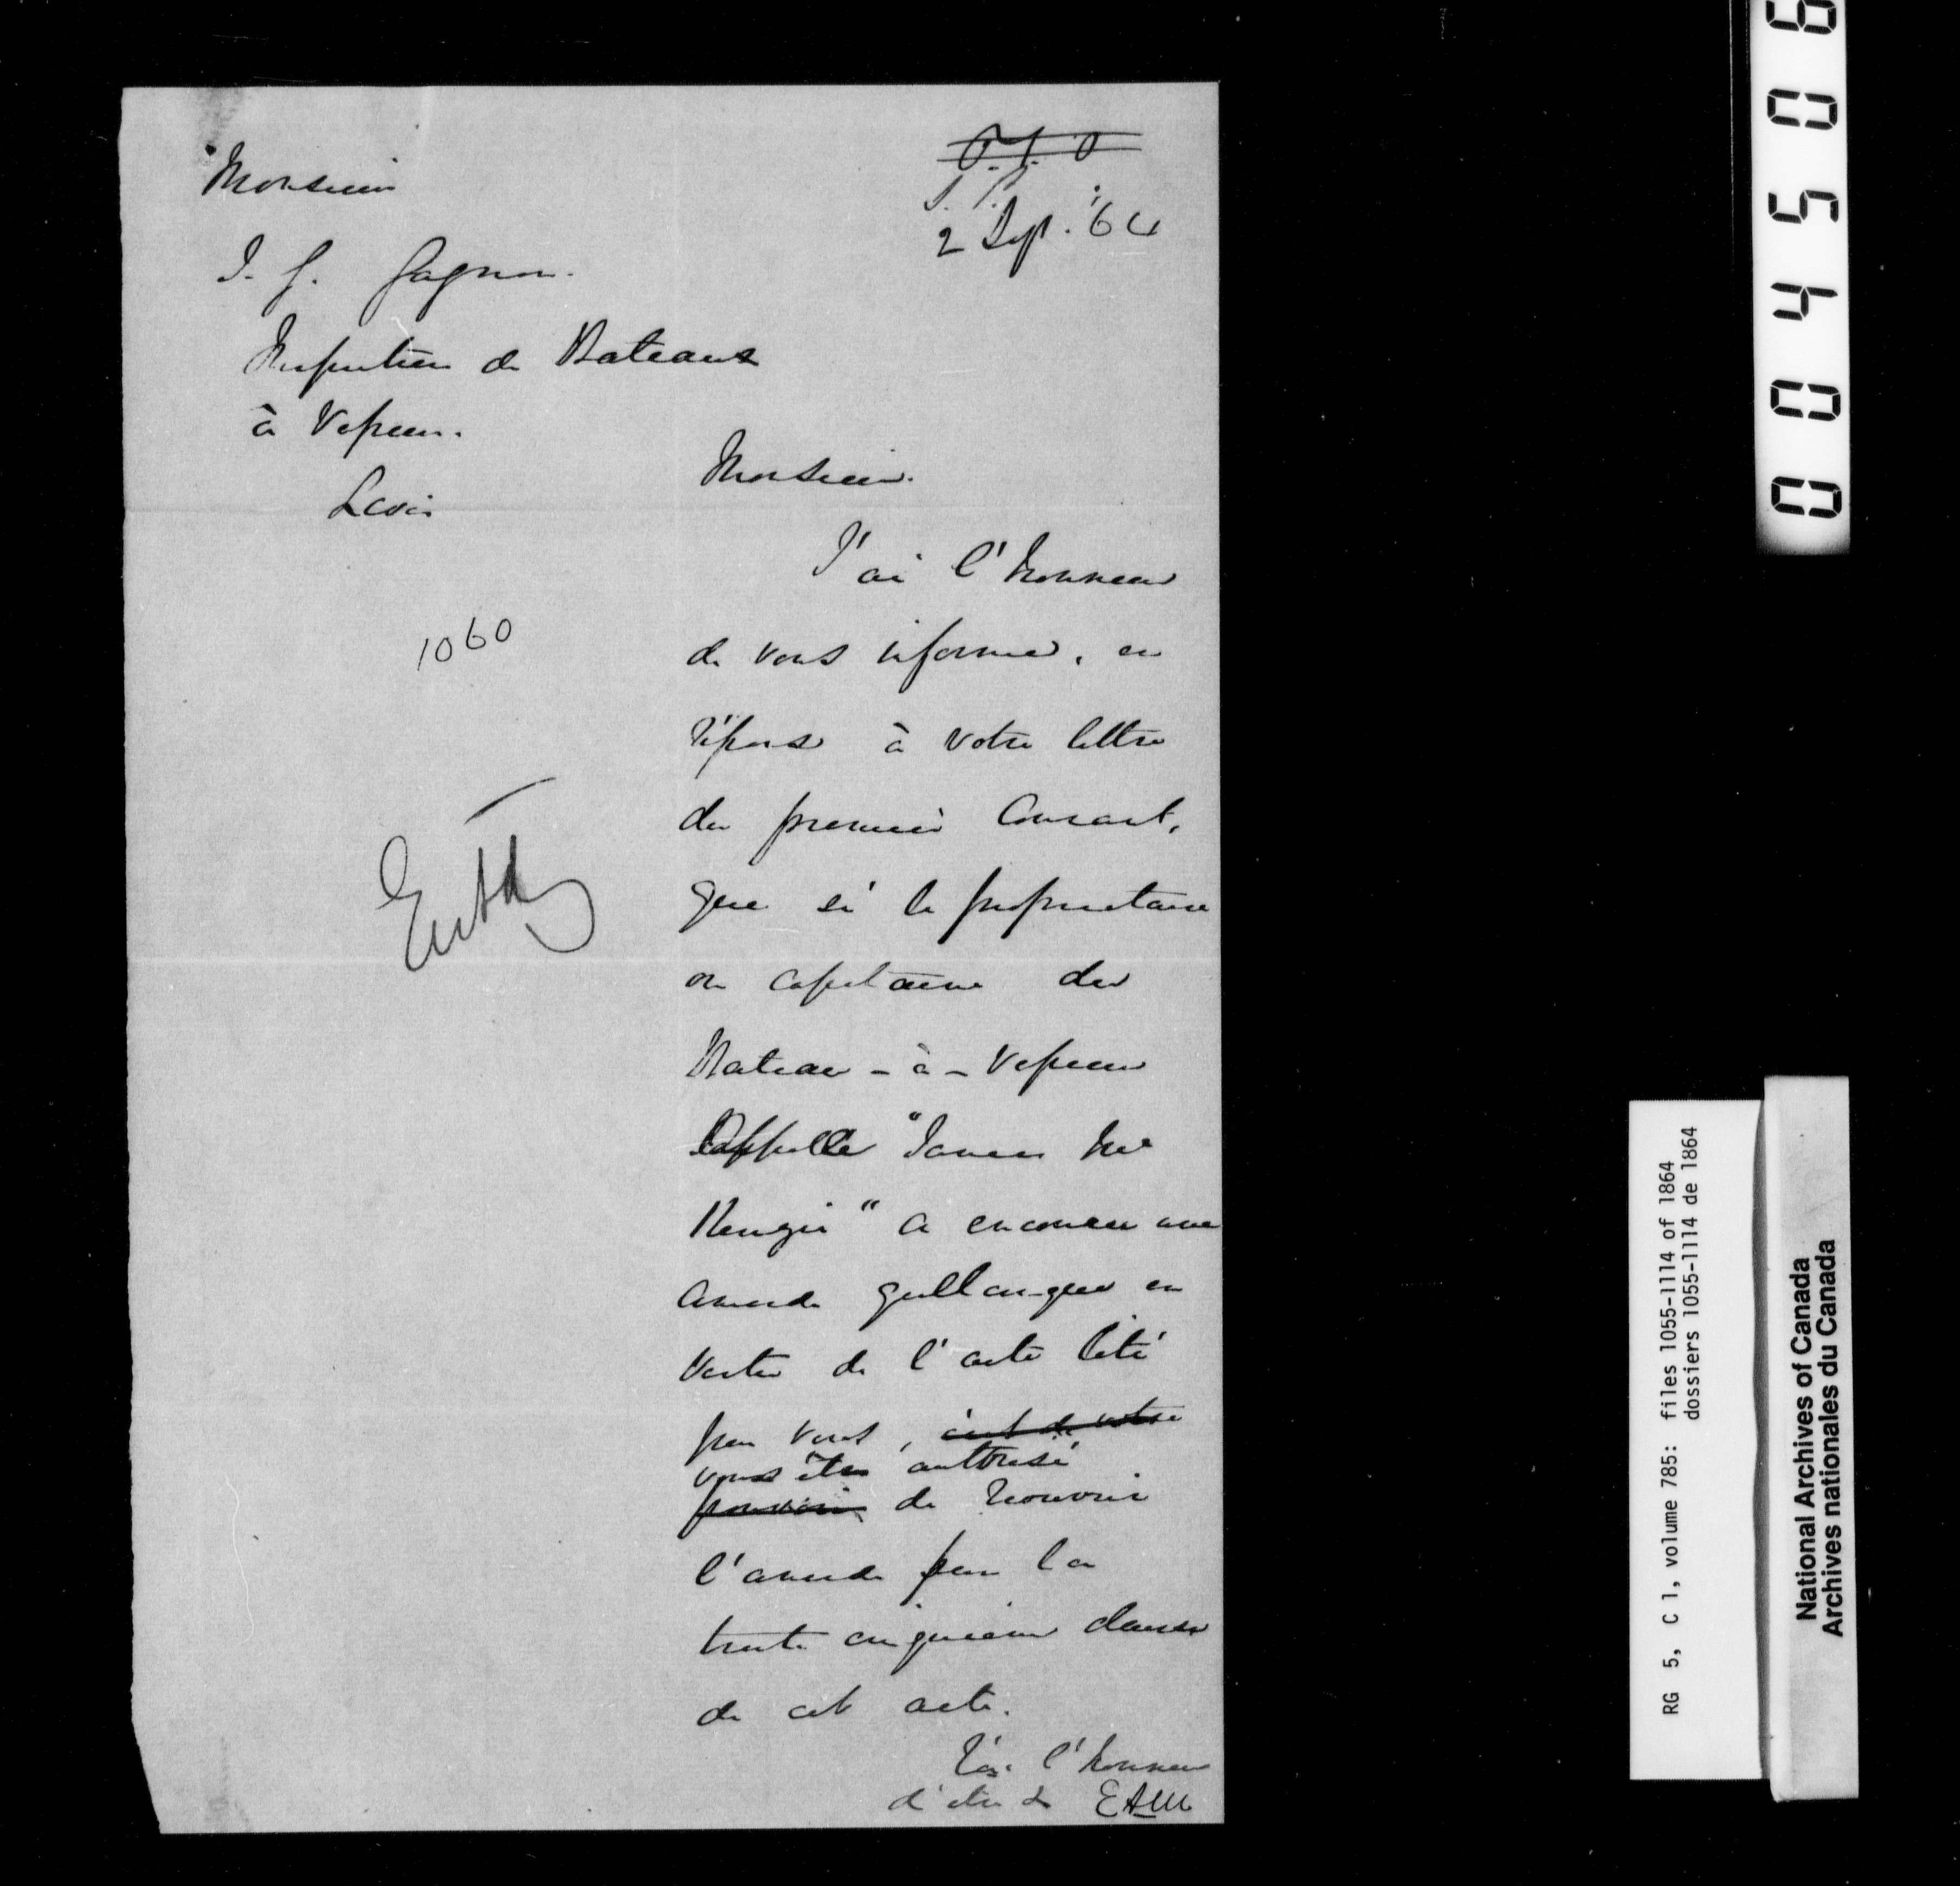 Monsieur
J. G. Gagnon.
Inspecteur de Bateaux
à Vapeur.
Levis
S. P.
2 Sep. '64
1060
Entd
Monsieur.
J'ai l'honneur
de vous informer, en
réponse à votre lettre
du premier Courant,
que si le propriétaire
ou capitaine du
Bateau-à-Vapeur
appellé "James Mc
Kenzie" a encouru une
amende quelconque en
vertu de l'acte Cité
par vous, c'est de votre
vous êtes authorisé
pouvoir de recouvrir
l'amende par la
trente cinquième clause
de cet acte.
J'ai l'honneur
d'etre & EAM
004506
RG 5, C 1, volume 785: files 1055-1114 of 1864
dossiers 1055-1114 de 1864
National Archives of Canada
Archives nationales du Canada